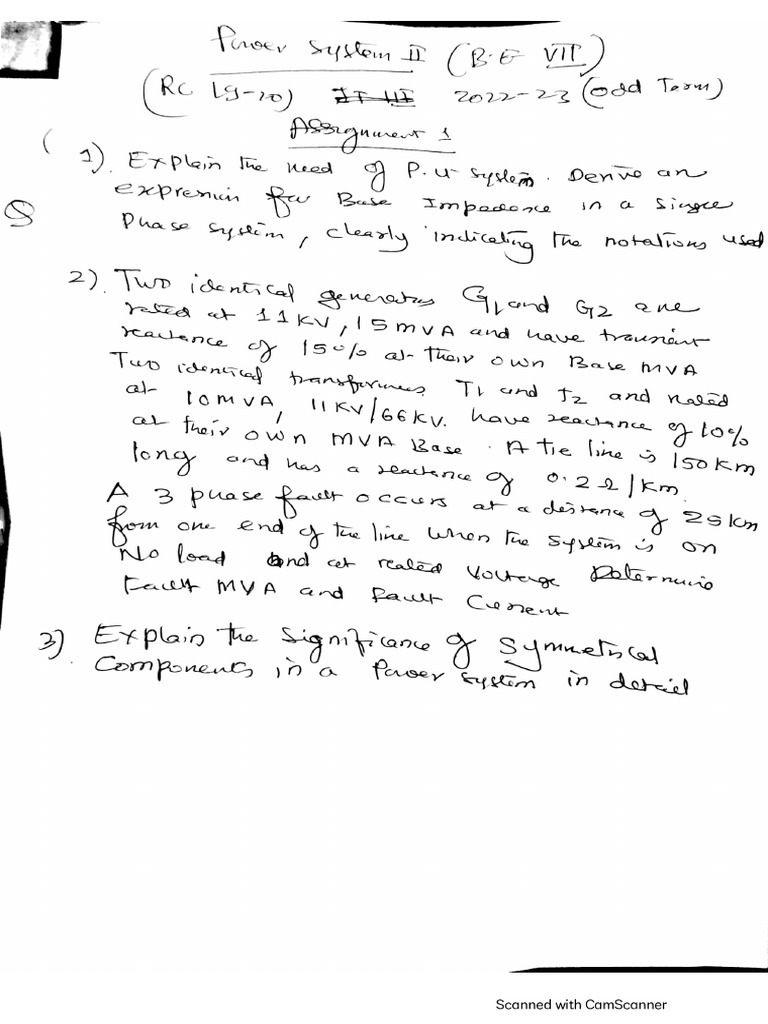 Power System II (B.E VII)
(RC 19-20) 2022-23 (odd Term)
Assignment 1
1). Explain the need of P.U system. Derive an
expression for Base Impedence in a Single
Phase system, clearly indicating the notations used
2). Two identical generators G1 and G2 are
rated at 11KV, 15MVA and have transient
reactance of 15% at their own Base MVA
Two identical transformers T1 and T2 and rated
at 10MVA, 11KV/66KV. have reactance of 10%
at their own MVA Base. A tie line is 150KM
long and has a reactance of 0.2Ω/KM.
A 3 phase fault occurs at a distance of 25KM
from one end of the line when the system is on
No load and at rated voltage Determine
Fault MVA and Fault Current
3) Explain the significance of Symmetrical
Components in a Power system in detail
Scanned with CamScanner